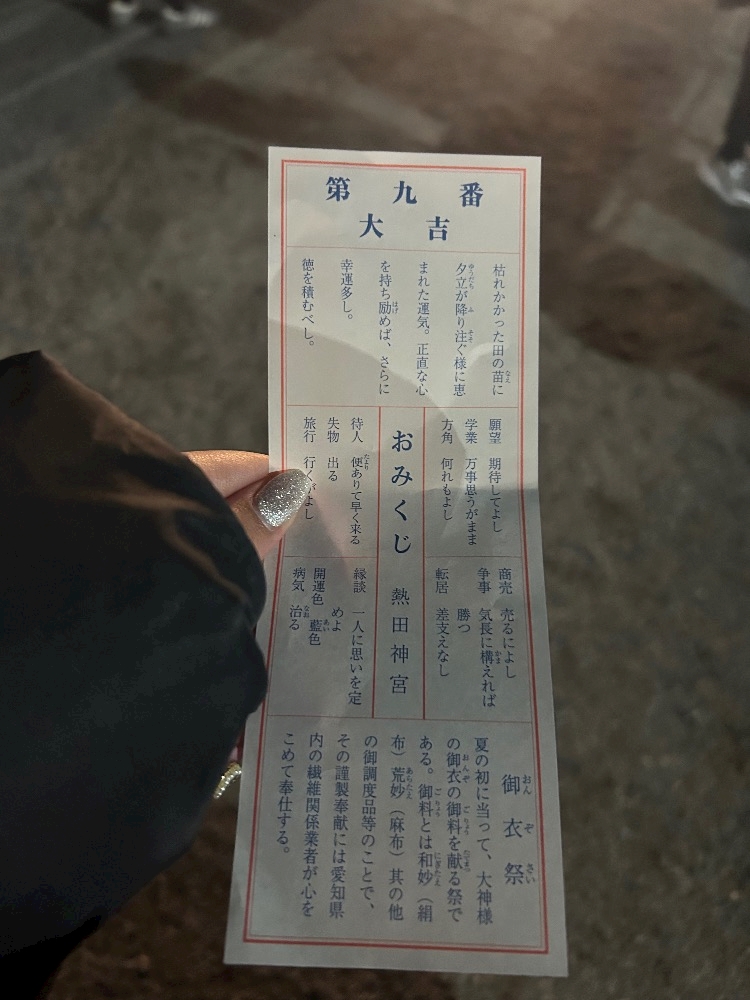 第九番
大吉
枯れかかった田の苗に
夕立が降り注ぐ様に恵
まれた運気。正直な心
を持ち励めば、さらに
幸運多し。
徳を積むべし。
願望 期待してよし
学業 万事思うがまま
方角 何れもよし
おみくじ 熱田神宮
待人 便ありて早く来る
失物 出る
旅行 行くがよし
商売 売るによし
争事 気長に構えれば
勝つ
転居 差支えなし
縁談 一人に思いを定
めよ
開運色 藍色
病気 治る
御衣祭
夏の初に当って、大神様
の御衣の御料を献る祭で
ある。御料とは和妙（絹
布）荒妙（麻布）其の他
の御調度品等のことで、
その謹製奉献には愛知県
内の繊維関係業者が心を
こめて奉仕する。